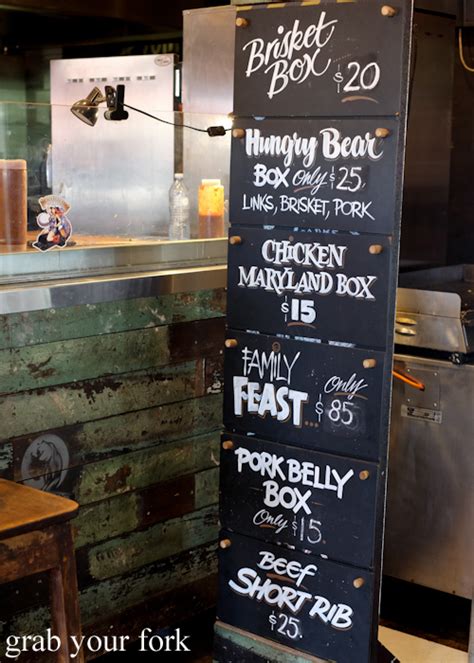 Brisket
Box $20
Hungry Bear
BOX Only $25
LINKS, BRISKET, PORK
CHICKEN
MARYLAND BOX
$15
FAMILY
FEAST Only $85
PORK BELLY
BOX
Only $15
BEEF
SHORT RIB
$25.
grab your fork